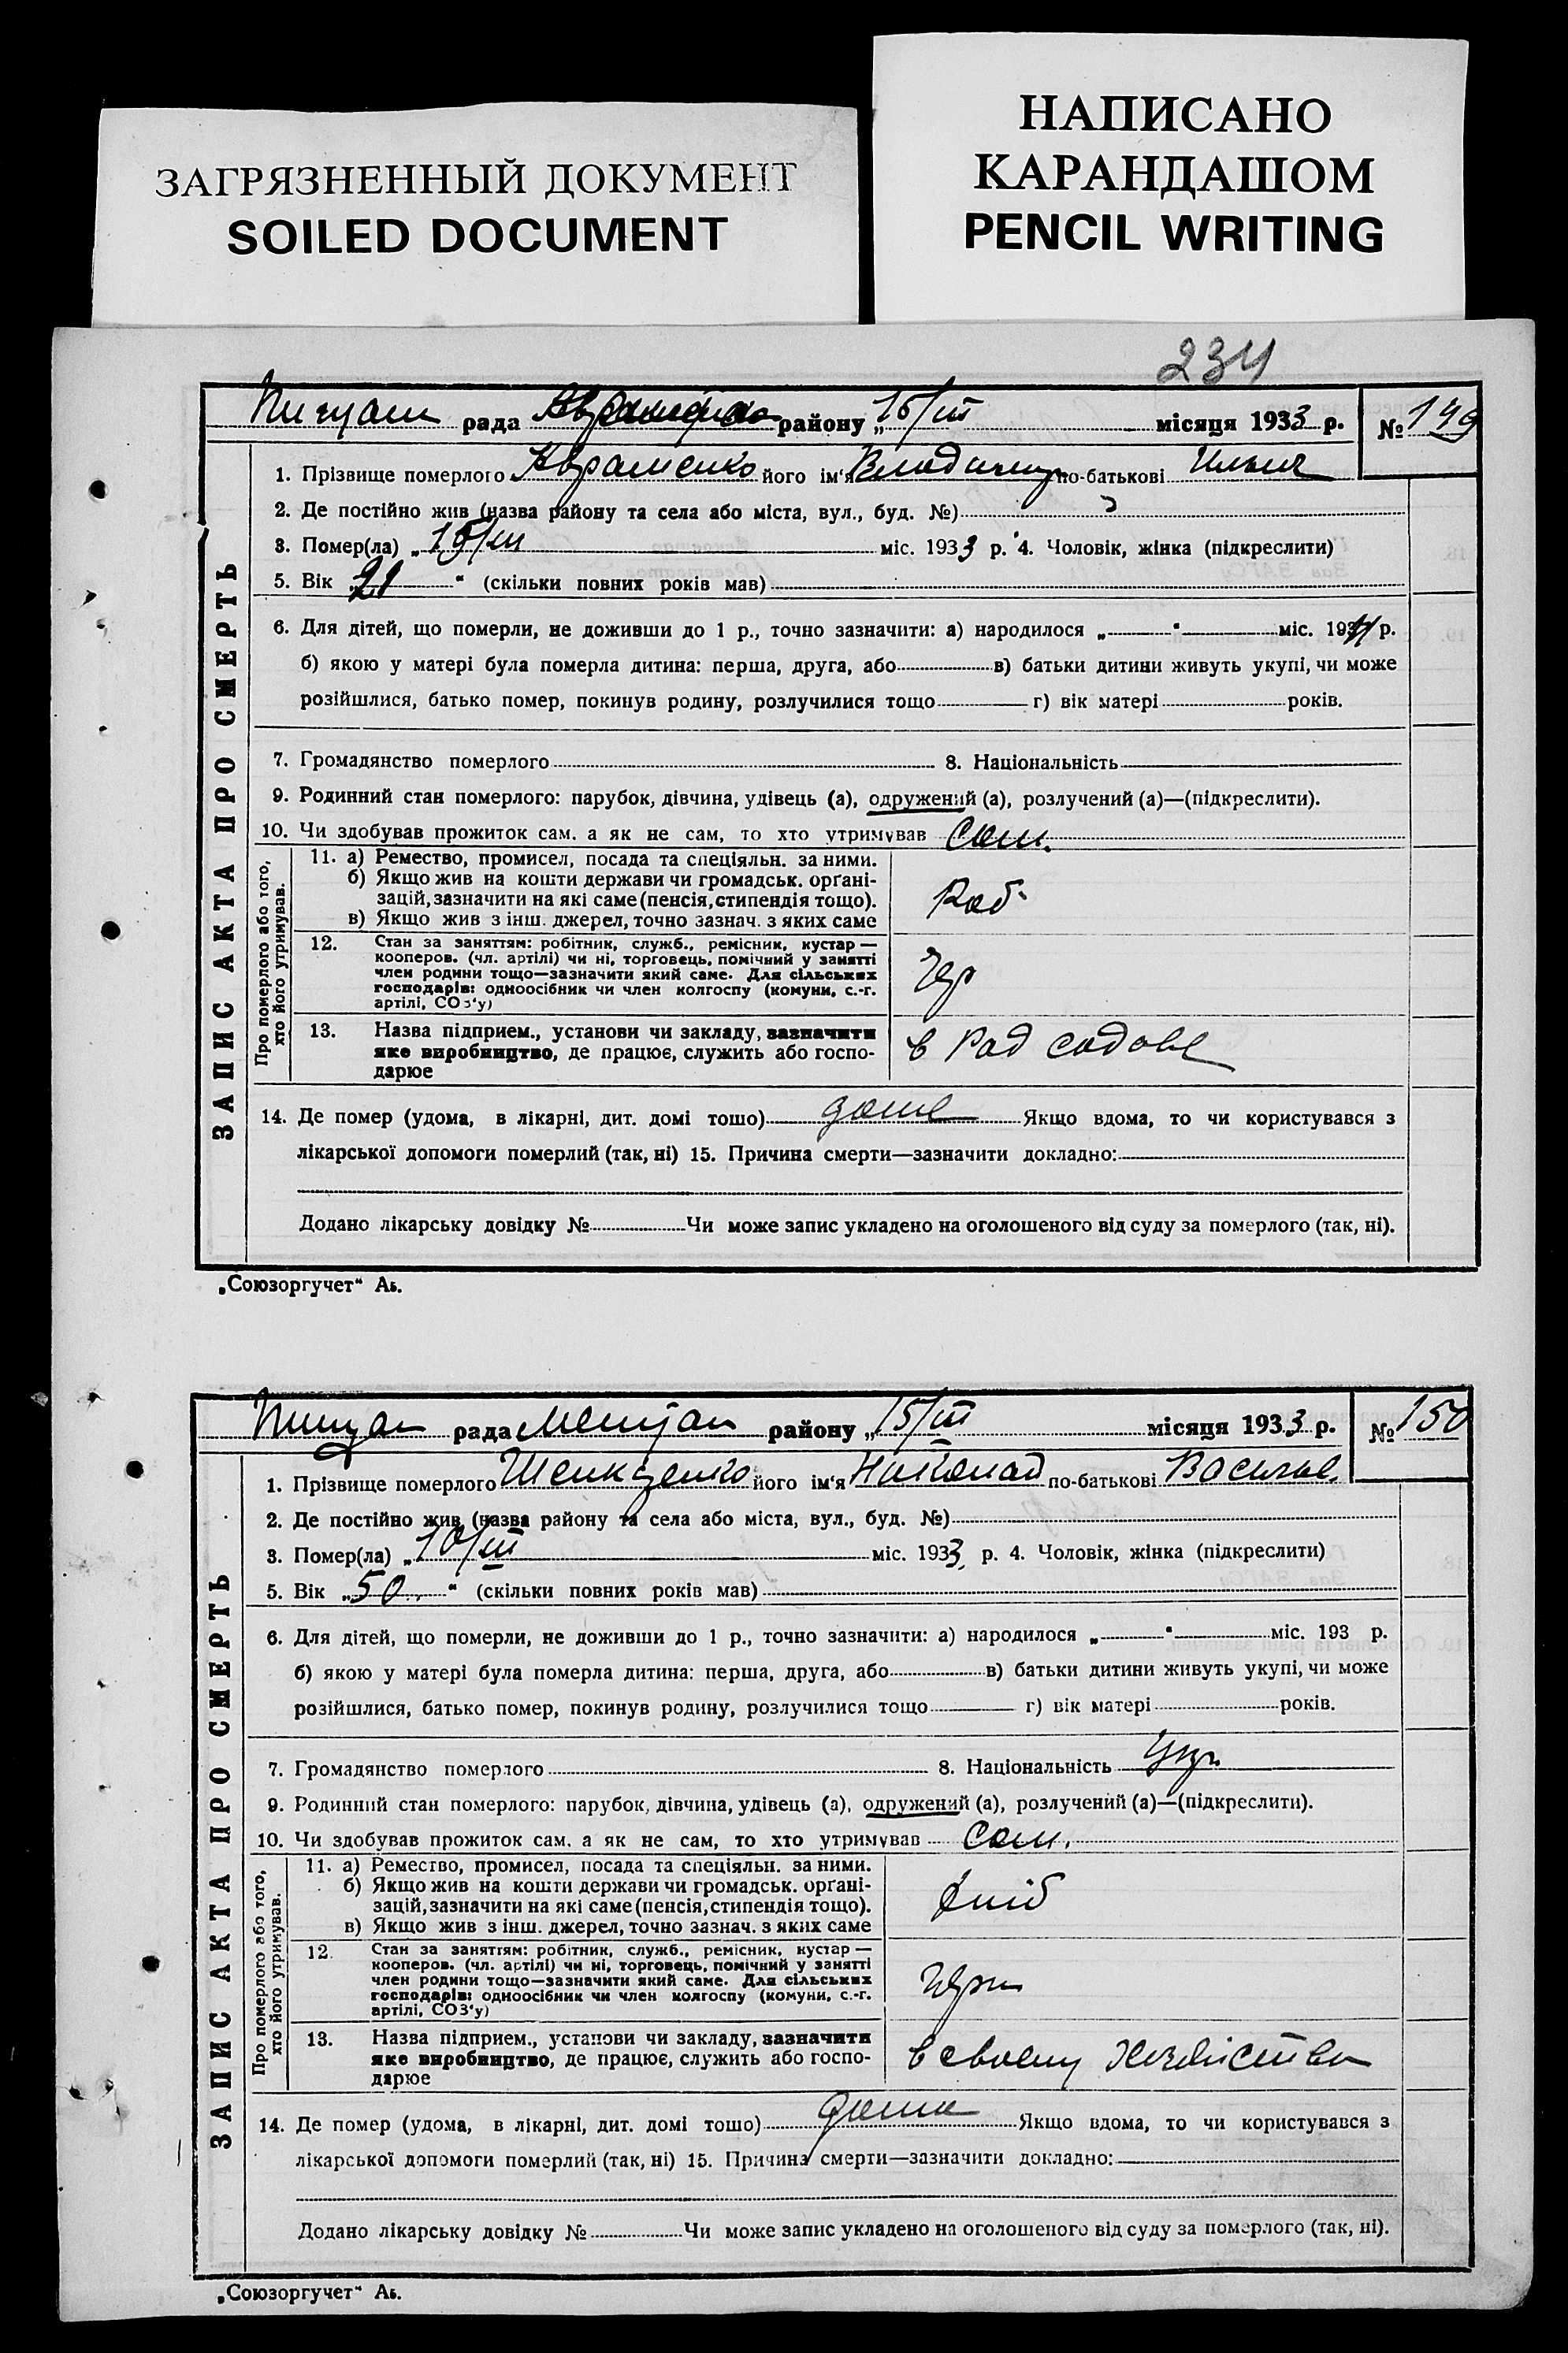 ЗАГРЯЗНЕННЫЙ ДОКУМЕНТ
SOILED DOCUMENT
НАПИСАНО
КАРАНДАШОМ
PENCIL WRITING
234
рада району „15/III місяця 1933 р. № 149
ЗАПИС АКТА ПРО СМЕРТЬ
1. Прізвище померлого Авраменко його ім'я Владимир по-батькові Ильич
2. Де постійно жив (назва району та села або міста, вул., буд. №)
3. Помер(ла) „15/III міс. 1933 р. 4. Чоловік, жінка (підкреслити)
5. Вік „21“ (скільки повних років мав)
6. Для дітей, що померли, не доживши до 1 р., точно зазначити: а) народилося „ “ міс. 193 р.
б) якою у матері була померла дитина: перша, друга, або в) батьки дитини живуть укупі, чи може
розійшлися, батько помер, покинув родину, розлучилися тощо г) вік матері років.
7. Громадянство померлого 8. Національність
9. Родинний стан померлого: парубок, дівчина, удівець (а), одружений (а), розлучений (а)—(підкреслити).
10. Чи здобував прожиток сам, а як не сам, то хто утримував Сам.
Про померлого або того, хто його утримував.
11. а) Ремество, промисел, посада та спеціяльн. за ними.
б) Якщо жив на кошти держави чи громадськ. орґані-
зацій, зазначити на які саме (пенсія, стипендія тощо).
в) Якщо жив з інш. джерел, точно зазнач. з яких саме
Роб
12. Стан за заняттям: робітник, служб., ремісник, кустар—
кооперов. (чл. артілі) чи ні, торговець, помічний у занятті
член родини тощо—зазначити який саме. Для сільських
господарів: одноосібник чи член колгоспу (комуни, с.-г.
артілі, СОЗ'у)
13. Назва підприєм., установи чи закладу, зазначити
яке виробництво, де працює, служить або госпо-
дарює
в Рад
14. Де помер (удома, в лікарні, дит. домі тощо) доме Якщо вдома, то чи користувався з
лікарської допомоги померлий (так, ні) 15. Причина смерти—зазначити докладно:
Додано лікарську довідку № Чи може запис укладено на оголошеного від суду за померлого (так, ні).
„Союзоргучет“ Аь.
рада району „15/III місяця 1933 р. № 150
ЗАПИС АКТА ПРО СМЕРТЬ
1. Прізвище померлого його ім'я по-батькові
2. Де постійно жив (назва району та села або міста, вул., буд. №)
3. Помер(ла) „10/III міс. 1933 р. 4. Чоловік, жінка (підкреслити)
5. Вік „50“ (скільки повних років мав)
6. Для дітей, що померли, не доживши до 1 р., точно зазначити: а) народилося „ “ міс. 193 р.
б) якою у матері була померла дитина: перша, друга, або в) батьки дитини живуть укупі, чи може
розійшлися, батько помер, покинув родину, розлучилися тощо г) вік матері років.
7. Громадянство померлого 8. Національність Укр.
9. Родинний стан померлого: парубок, дівчина, удівець (а), одружений (а), розлучений (а)—(підкреслити).
10. Чи здобував прожиток сам, а як не сам, то хто утримував Сам.
Про померлого або того, хто його утримував.
11. а) Ремество, промисел, посада та спеціяльн. за ними.
б) Якщо жив на кошти держави чи громадськ. орґані-
зацій, зазначити на які саме (пенсія, стипендія тощо).
в) Якщо жив з інш. джерел, точно зазнач. з яких саме
12. Стан за заняттям: робітник, служб., ремісник, кустар—
кооперов. (чл. артілі) чи ні, торговець, помічний у занятті
член родини тощо—зазначити який саме. Для сільських
господарів: одноосібник чи член колгоспу (комуни, с.-г.
артілі, СОЗ'у)
13. Назва підприєм., установи чи закладу, зазначити
яке виробництво, де працює, служить або госпо-
дарює
в своему
14. Де помер (удома, в лікарні, дит. домі тощо) дома Якщо вдома, то чи користувався з
лікарської допомоги померлий (так, ні) 15. Причина смерти—зазначити докладно:
Додано лікарську довідку № Чи може запис укладено на оголошеного від суду за померлого (так, ні).
„Союзоргучет“ Аь.